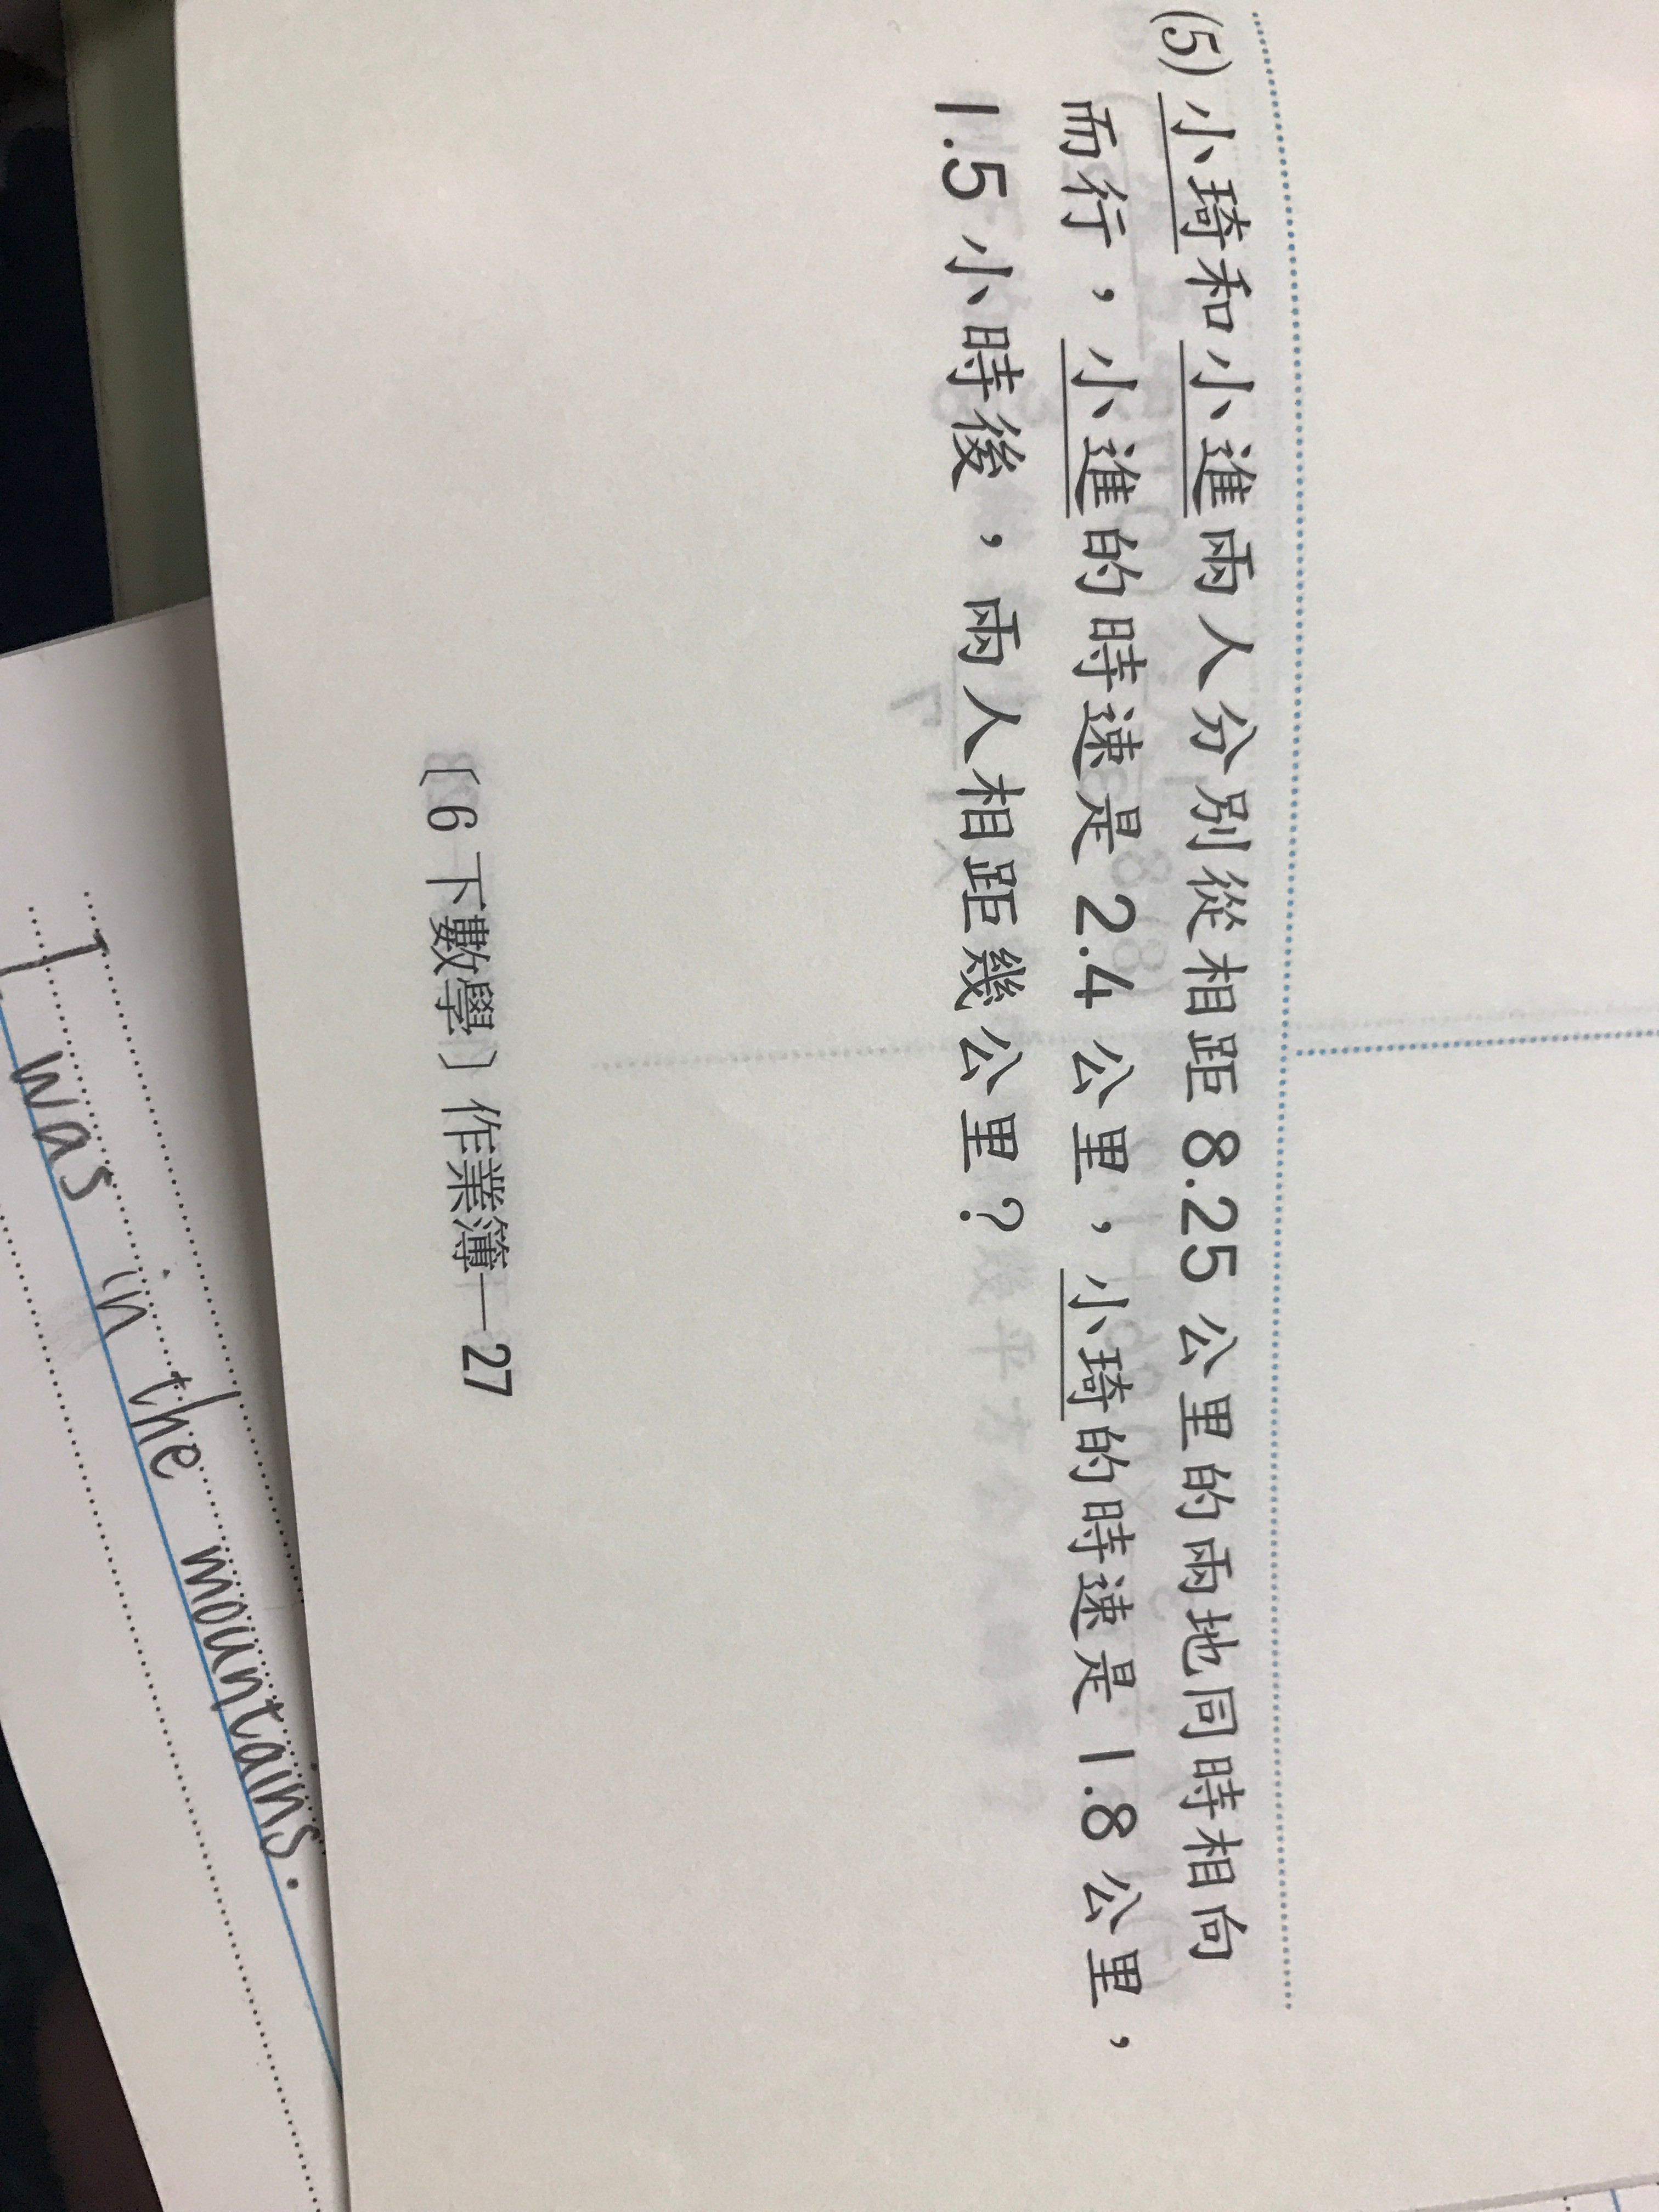 (5) 小琦和小進兩人分別從相距 8.25 公里的兩地同時相向
而行，小進的時速是 2.4 公里，小琦的時速是 1.8 公里，
1.5 小時後，兩人相距幾公里？
〔6 下數學〕作業簿—27
I was in the mountains.